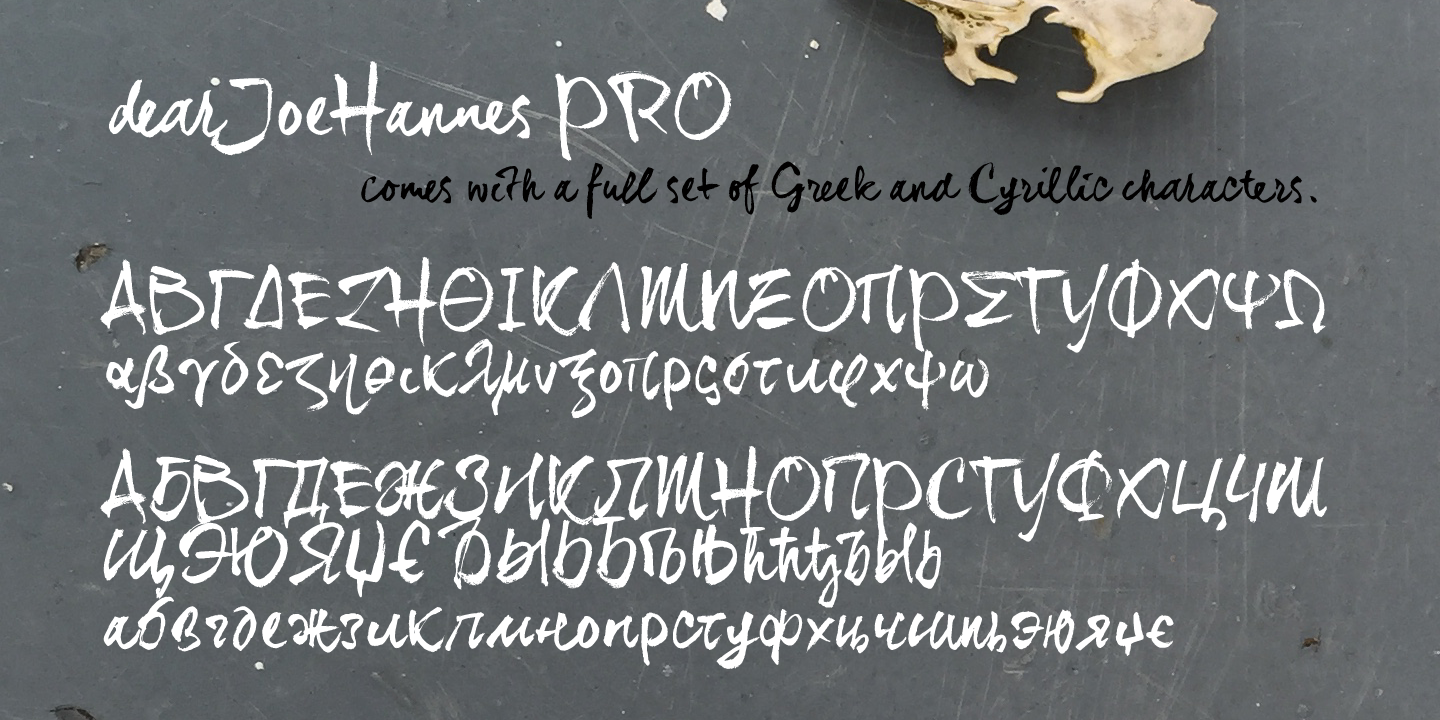 dearJoeHannes PRO
comes with a full set of Greek and Cyrillic characters.
ΑΒΓΔΕΖΗΘΙΚΛΜΝΞΟΠΡΣΤΥΦΧΨΩ
αβγδεζηθικλμνξοπρςστυφχψω
АБВГДЕЖЗИКЛМНОПРСТУФХЦЧШ
ЩЭЮЯЏЄ
абвгдежзиклмнопрстуфхцчшщэюяџє